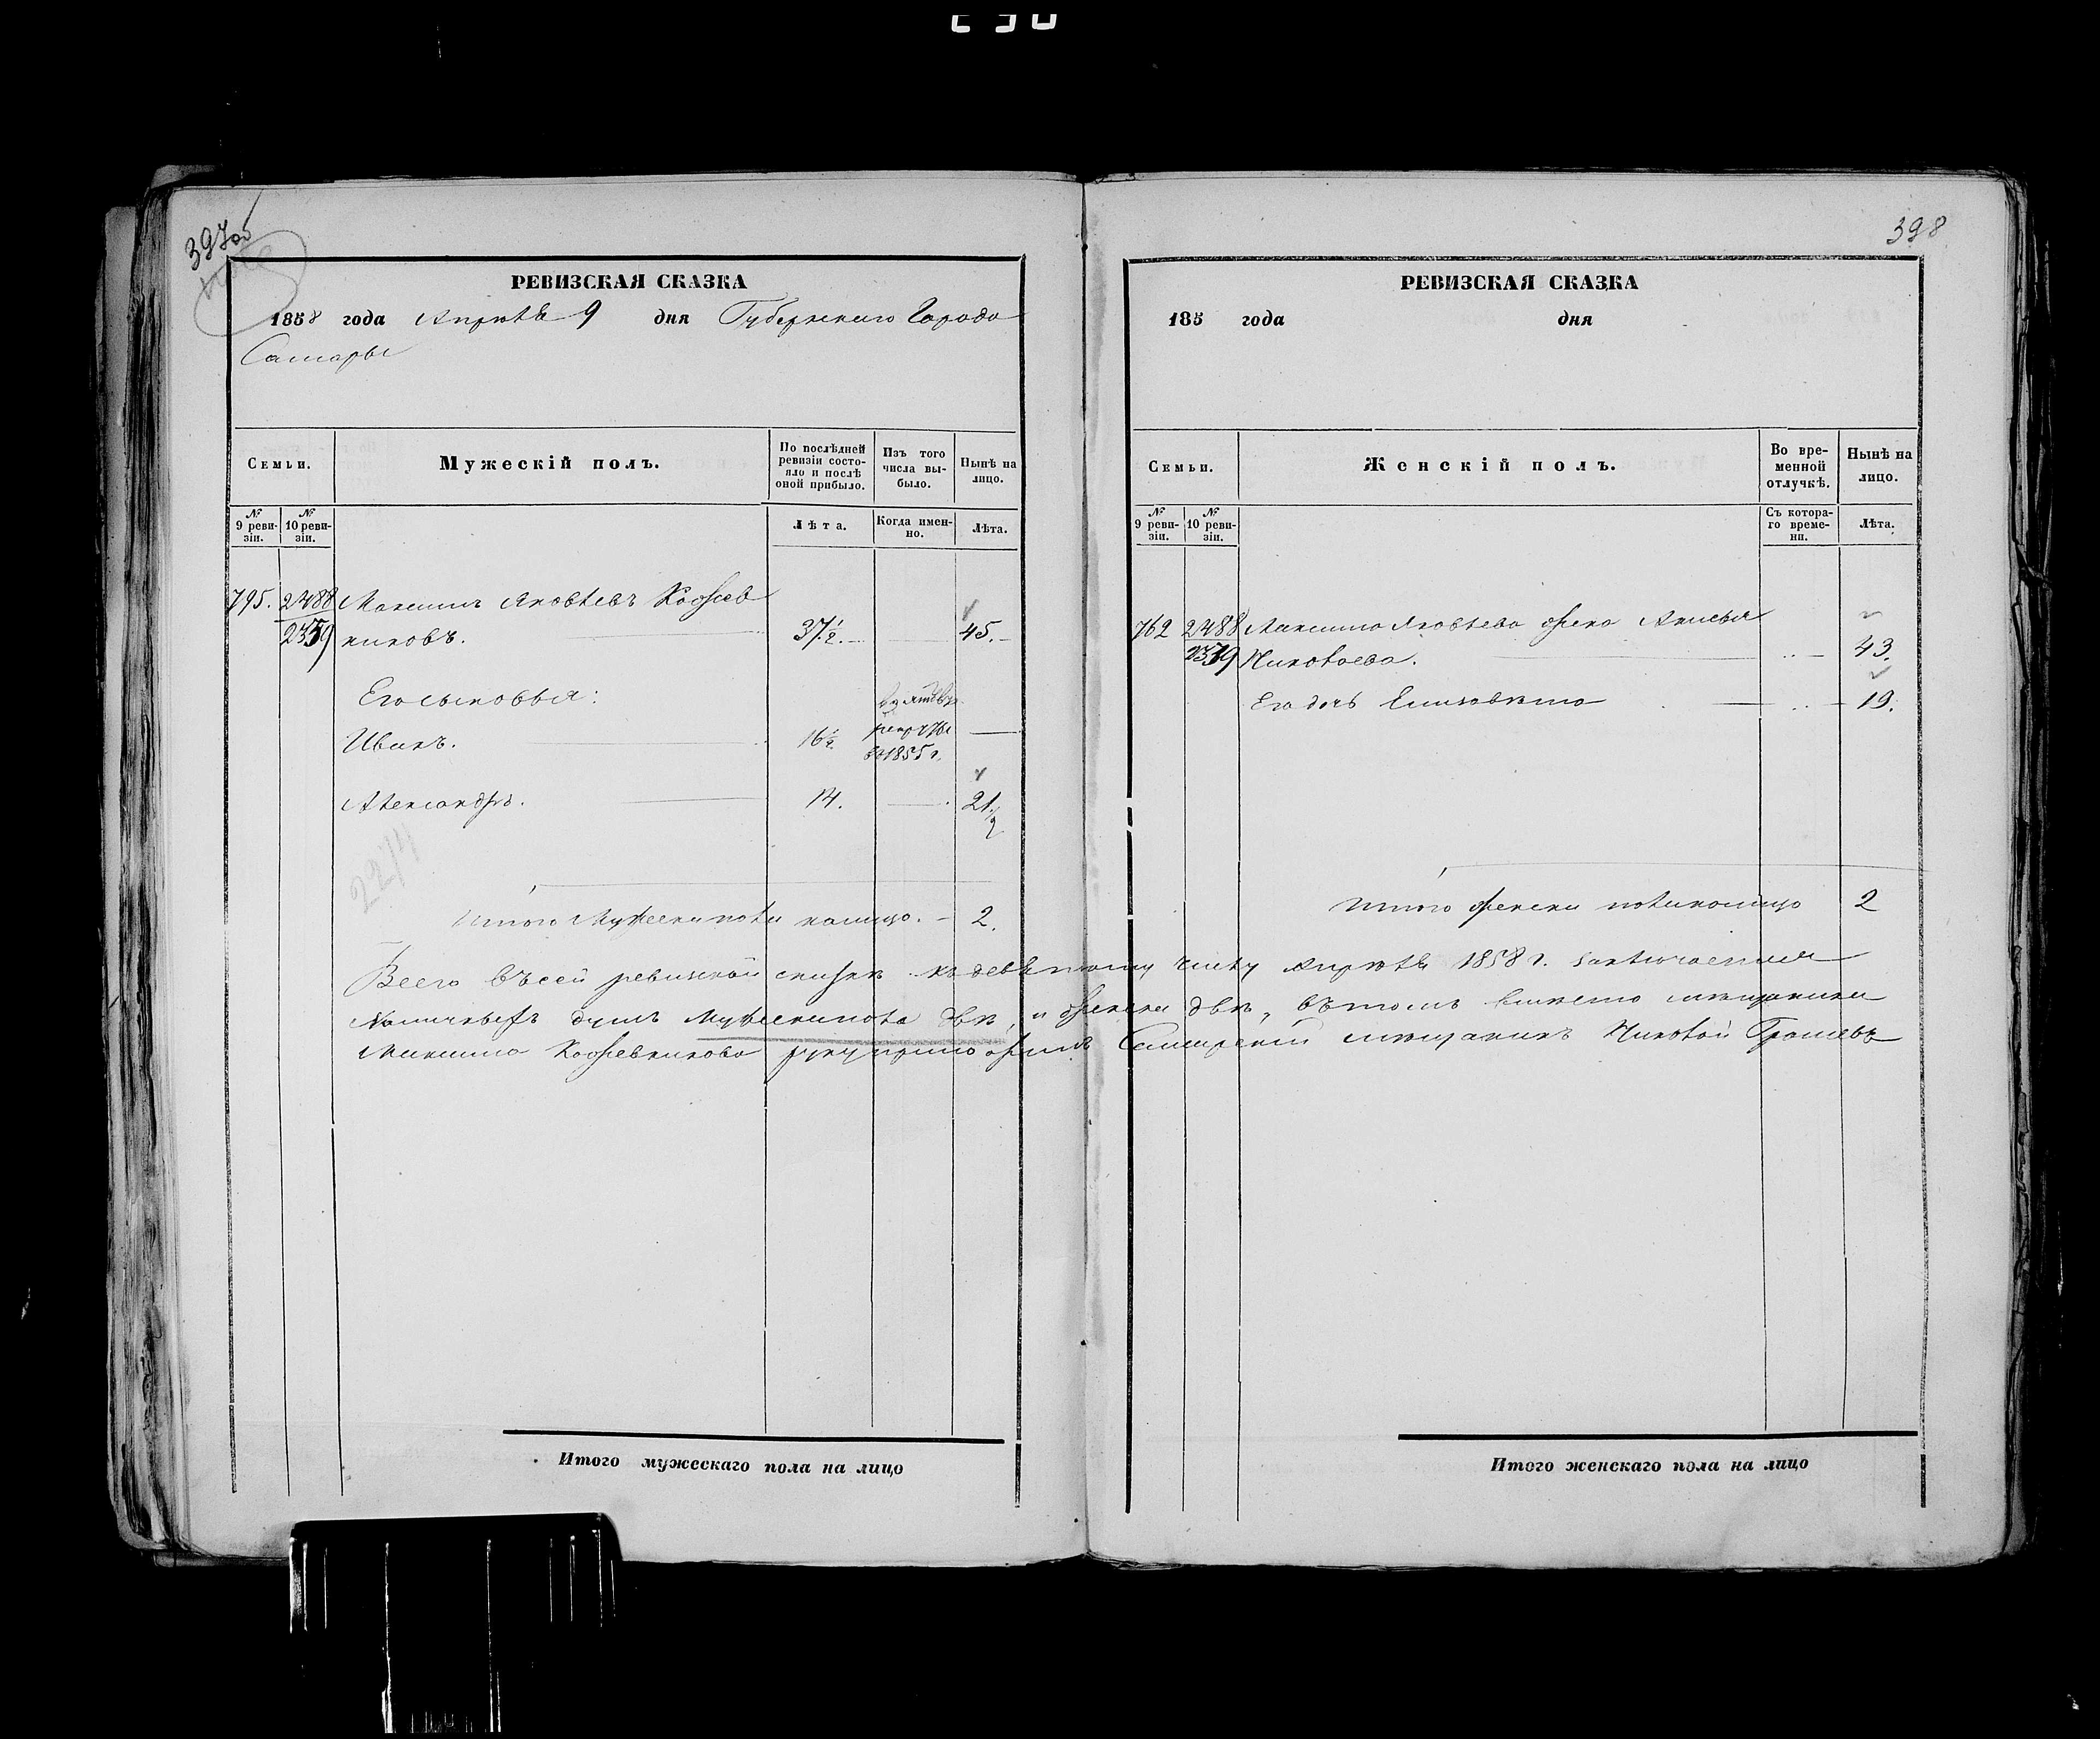 397об
РЕВИЗСКАЯ СКАЗКА
1858 года Апрѣля 9 дня Губернскаго Города
Самары
Семьи.
Мужескій полъ.
По послѣдней ревизіи состояло и послѣ оной прибыло.
Изъ того числа выбыло.
Нынѣ на лицо.
№ 9 ревизіи.
№ 10 ревизіи.
Лѣта.
Когда именно.
Лѣта.
795. 2488 Максимъ Яковлевъ Кожев
2339 никовъ. 37½. 45.
Его сыновья:
Иванъ. 16½ взятъ въ рекруты въ 1855 г.
Александръ. 14. 21½
2274
Итого Мужеска пола налицо. 2.
398
РЕВИЗСКАЯ СКАЗКА
185 года дня
Семьи.
Женскій полъ.
Во временной отлучкѣ.
Нынѣ на лицо.
№ 9 ревизіи.
№ 10 ревизіи.
Съ котораго времени.
Лѣта.
762 2488 Максима Яковлева жена
2339 Николаева. 43.
Его дочь Елизавета 19.
Итого женска пола налицо 2
Всего въ сей ревизской сказкѣ къ девятому числу Апрѣля 1858 г. заключается
Наличныхъ душъ Мужеска пола двѣ, и женска двѣ, въ томъ вмѣсто мещанина
Максима Кожевникова руку приложилъ Самарскій мещанинъ Николай
Итого мужескаго пола на лицо
Итого женскаго пола на лицо